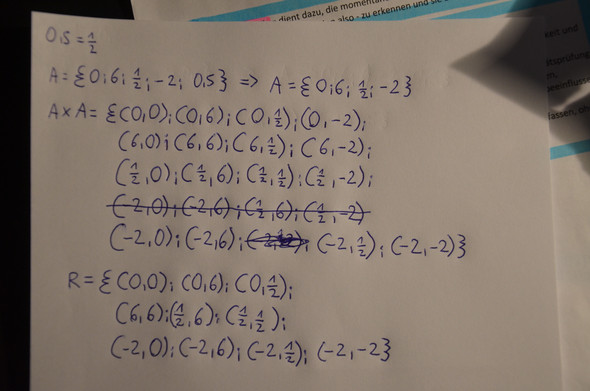 dient dazu, die momentan
also - zu erkennen und sie
keit und
tsprüfung
geeinflusse
fassen, üb
0,5 = 1/2
A = {0; 6; 1/2; -2; 0,5} => A = {0; 6; 1/2; -2}
A x A = {(0,0); (0,6); (0,1/2); (0,-2);
(6,0); (6,6); (6,1/2); (6,-2);
(1/2,0); (1/2,6); (1/2,1/2); (1/2,-2);
(-2,0); (-2,6); (1/2,6); (1/2,-2)
(-2,0); (-2,6); (-2,1/2); (-2,-2)}
R = {(0,0); (0,6); (0,1/2);
(6,6); (1/2,6); (1/2,1/2);
(-2,0); (-2,6); (-2,1/2); (-2,-2}